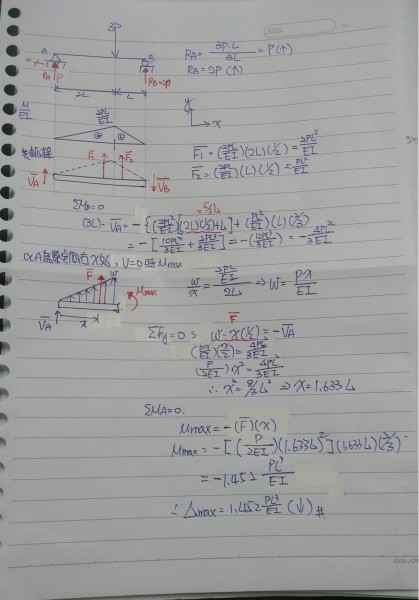 3P
A
B
RA = 3P·L / 3L = P(↑)
RB = 2P (↑)
RA=P
RB=2P
2L
L
M/EI
2PL/EI
⊕ ⊕
y
x
F̄1 = (2PL/EI)(2L)(1/2) = 2PL²/EI
F̄2 = (2PL/EI)(L)(1/2) = PL²/EI
F̄1
F̄2
V̄A
V̄B
ΣMB=0
=5/3L
(3L)·V̄A = -{(2PL²/EI)[(2L)(1/3)+L] + (PL²/EI)(L)(2/3)}
= -[10PL³/3EI + 2PL³/3EI] = -(12PL³/3EI) = -4PL²/3EI
以A為原空間右X處, V=0時Mmax
F̄
w
Mmax
V̄A
x
w/x = (2PL/EI)/2L → w = PX/EI
F̄
ΣFy=0 = w·X(1/2) = -V̄A
(PX/EI)(X/2) = 4PL²/3EI
(P/2EI)X² = 4PL²/3EI
∴ X² = 8/3 L² ⇒ X=1.633L
ΣMA=0.
Mmax = -(F̄)(X)
Mmax = -[(P/2EI)(1.633L)²](1.633L)(2/3)
= -1.452 PL³/EI
∴ Δmax = 1.452 PL³/EI (↓) #